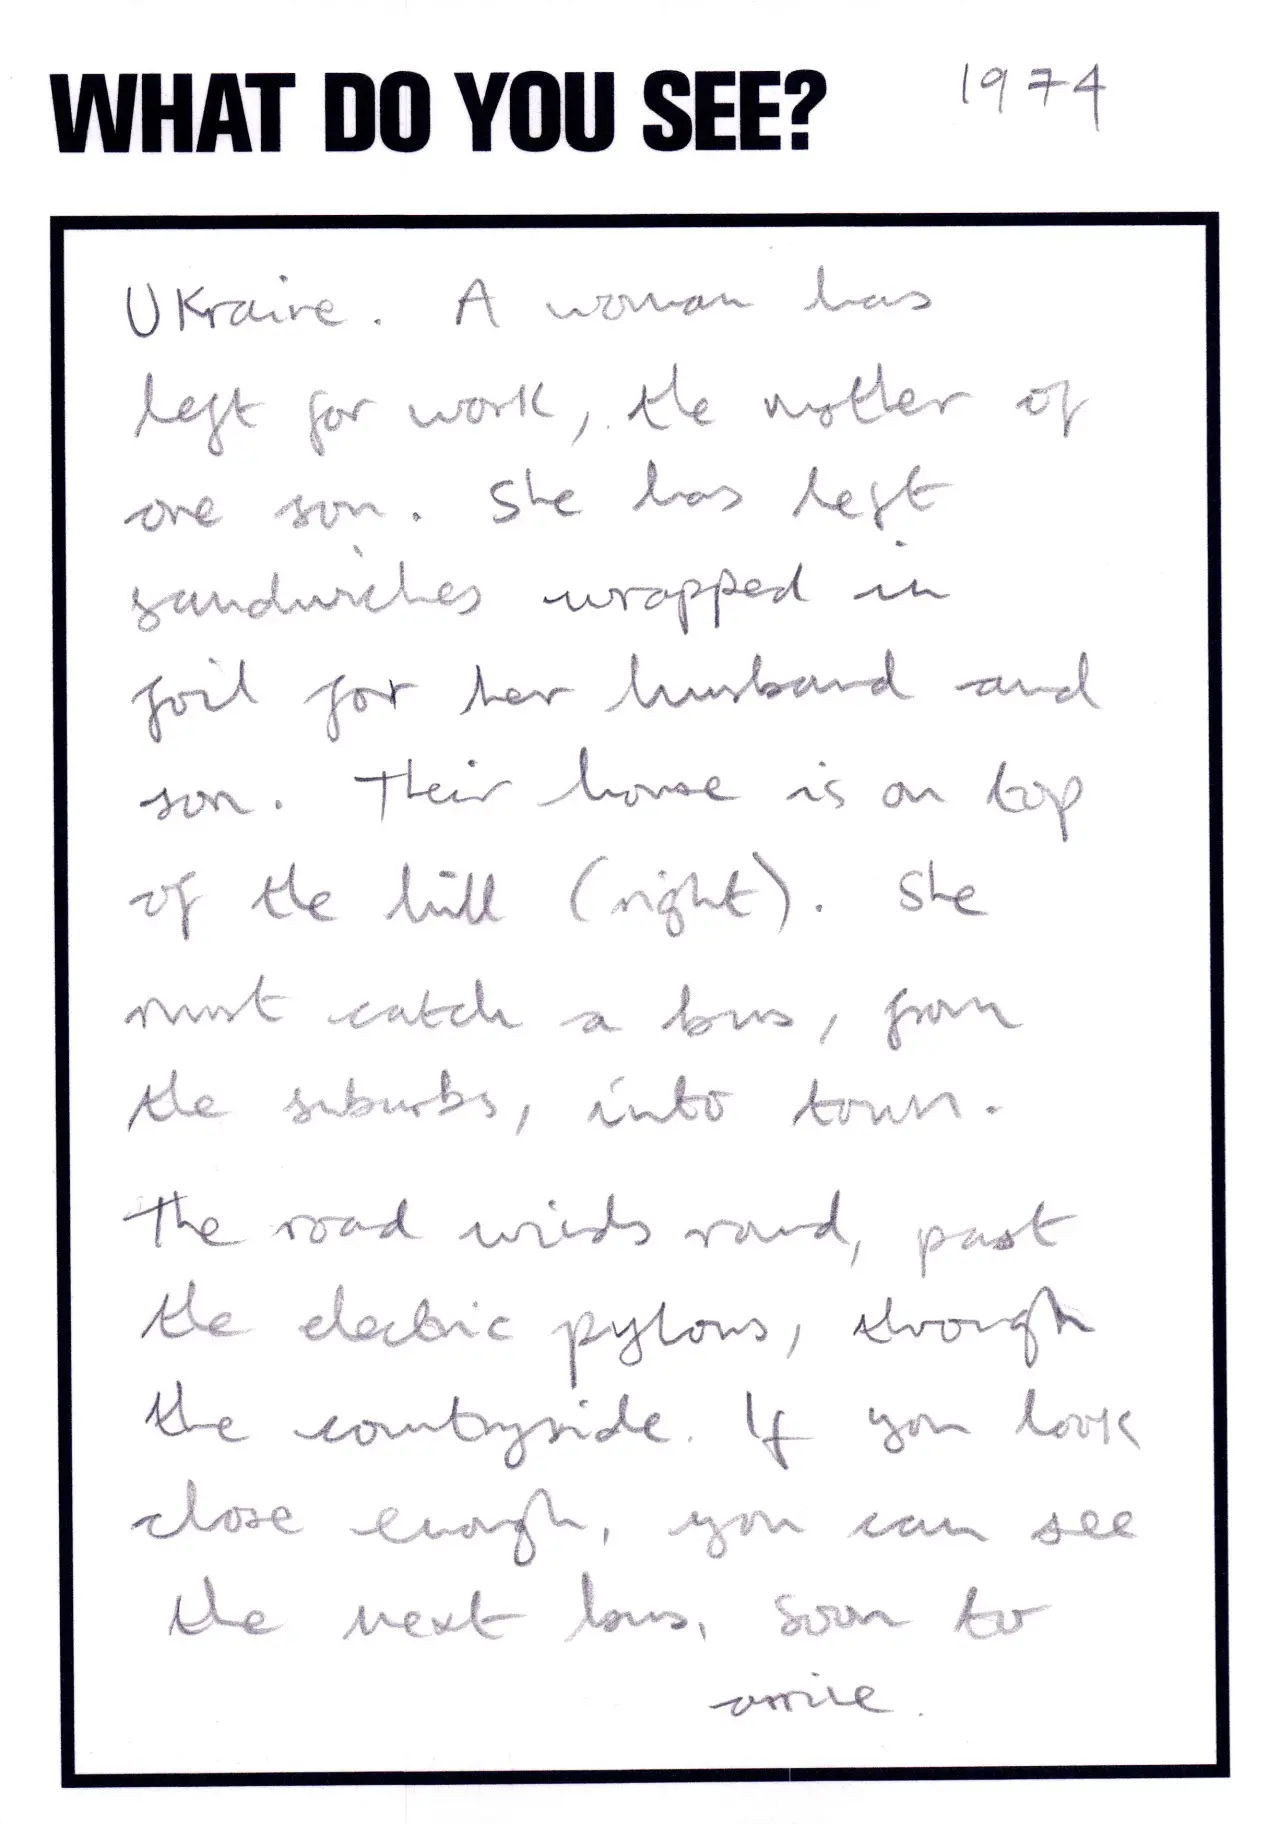 WHAT DO YOU SEE? 1974
Ukraine. A woman has
left for work, the mother of
one son. She has left
sandwiches wrapped in
foil for her husband and
son. Their house is on top
of the hill (right). She
must catch a bus, from
the suburbs, into town.
The road winds round, past
the electric pylons, through
the countryside. If you look
close enough, you can see
the next bus, soon to
arrive.